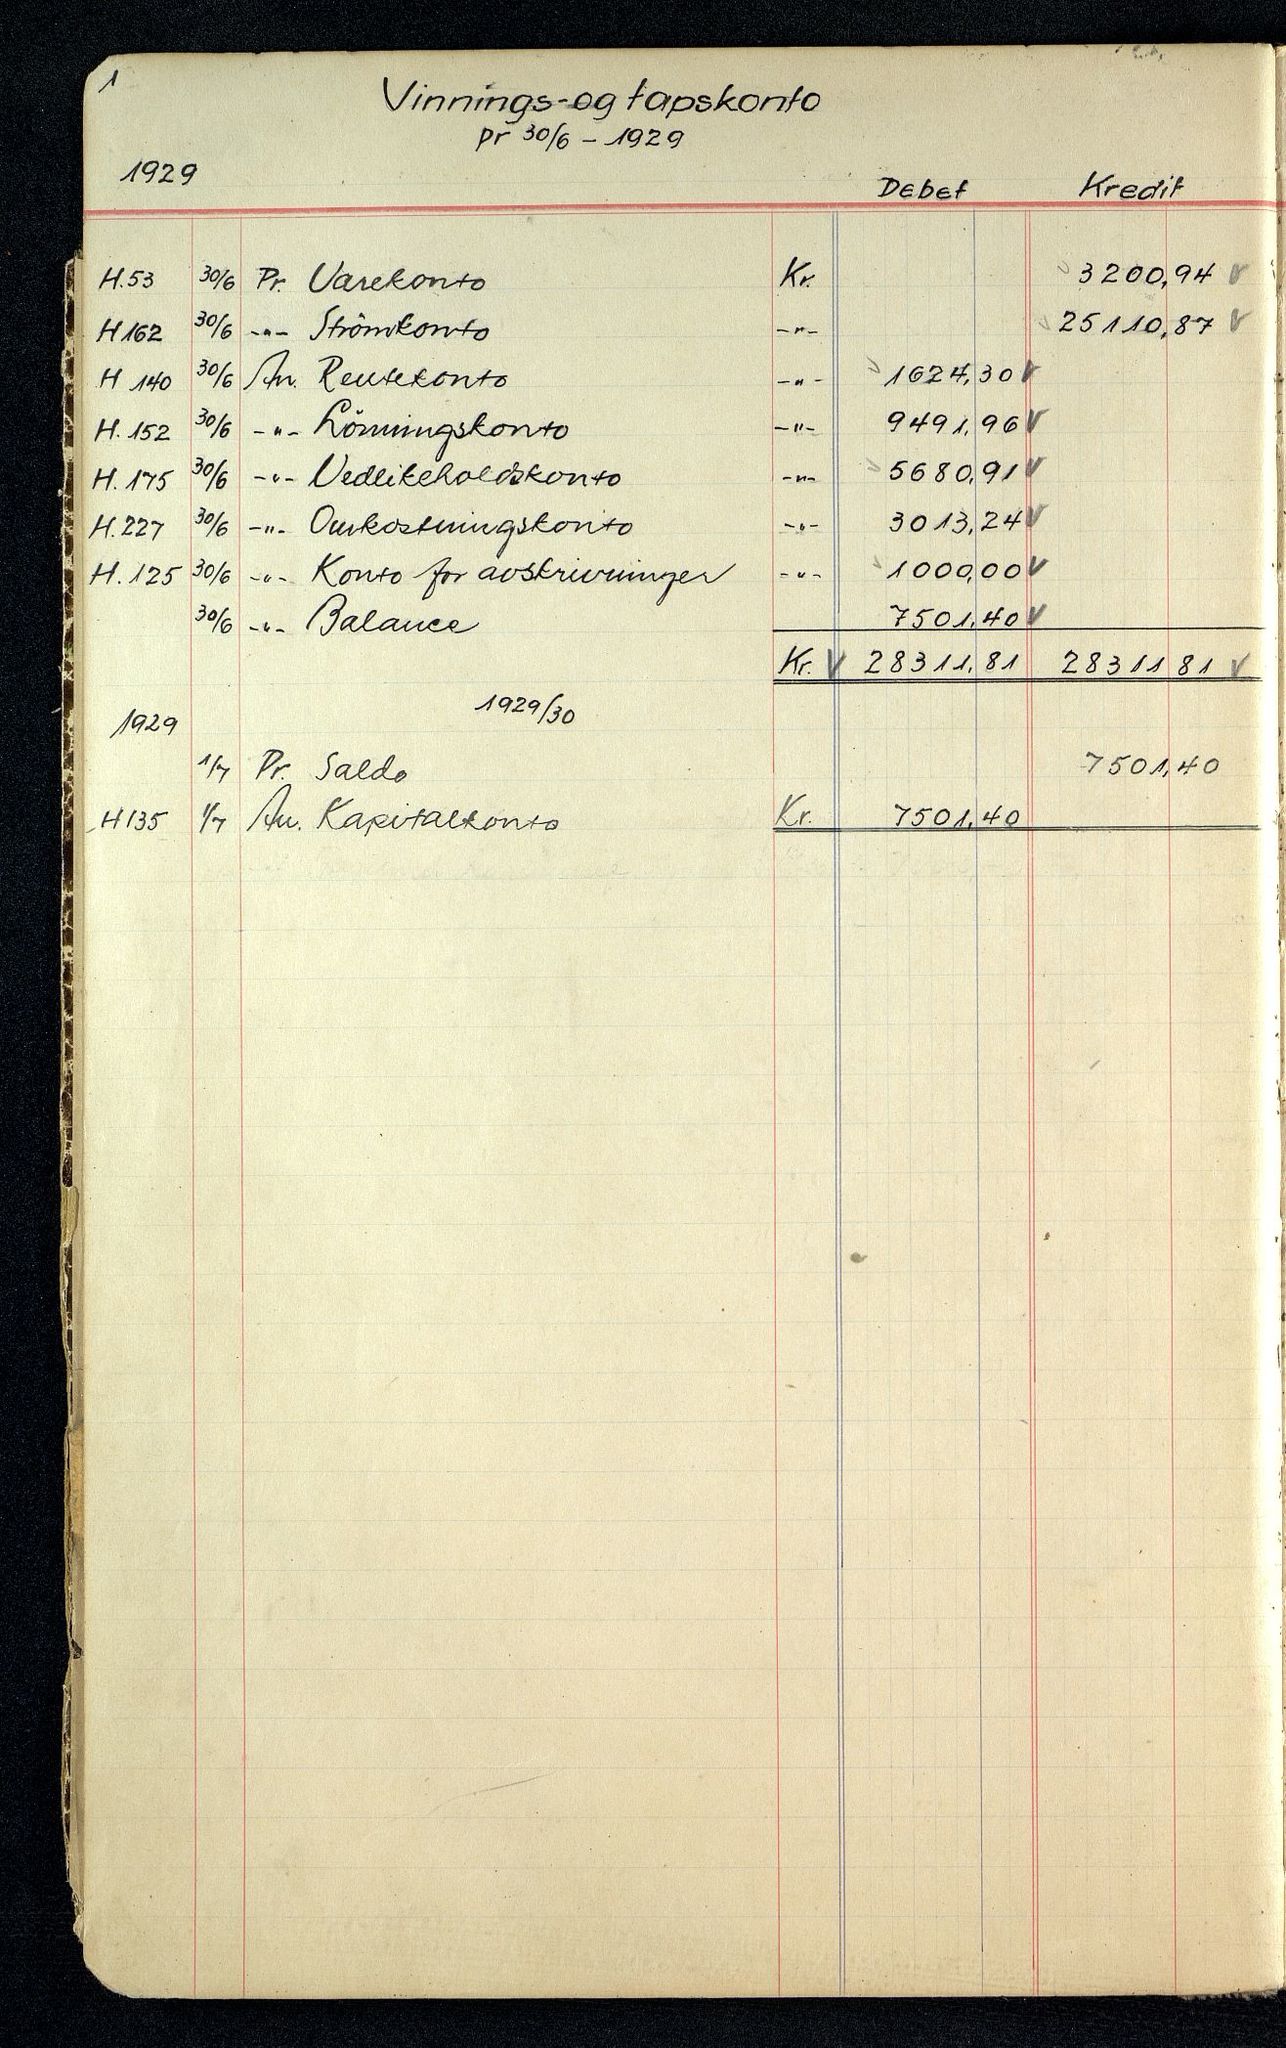 1
Vinnings-og tapskonto
pr 30/6 - 1929
1929
Debet Kredit
H.53 30/6 Pr. Varekonto Kr. 3200,94 V
H162 30/6 -"- Strömkonto -"- 25110,87 V
H 140 30/6 An. Rentekonto -"- 1624,30 V
H. 152 30/6 -"- Lönningskonto -"- 9491,96 V
H. 175 30/6 -"- Vedlikeholdskonto -"- 5680,91 V
H. 227 30/6 -"- Omkostningskonto -"- 3013,24 V
H. 125 30/6 -"- Konto for avskrivninger -"- 1000,00 V
30/6 -"- Balance 7501,40 V
Kr. V 28311,81 28311 81 V
1929 1929/30
1/7 Pr. Saldo 7501,40
H135 1/7 An. Kapitalkonto Kr. 7501,40